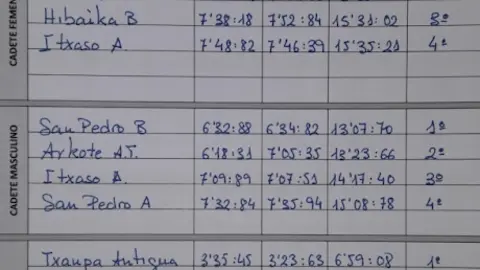 CADETE FEMEN
Hibaika B 7'38:18 7'52:84 15'31:02 3º
Itxaso A. 7'48:82 7'46:39 15'35:21 4ª
CADETE MASCULINO
San Pedro B 6'32:88 6'34:82 13'07:70 1º
Arkote A.T. 6'18:31 7'05:35 13'23:66 2º
Itxaso A. 7'09:89 7'07:51 14'17:40 3º
San Pedro A 7'32:84 7'35:94 15'08:78 4º
Txanpa Antigua 3'35:45 3'23:63 6'59:08 1º